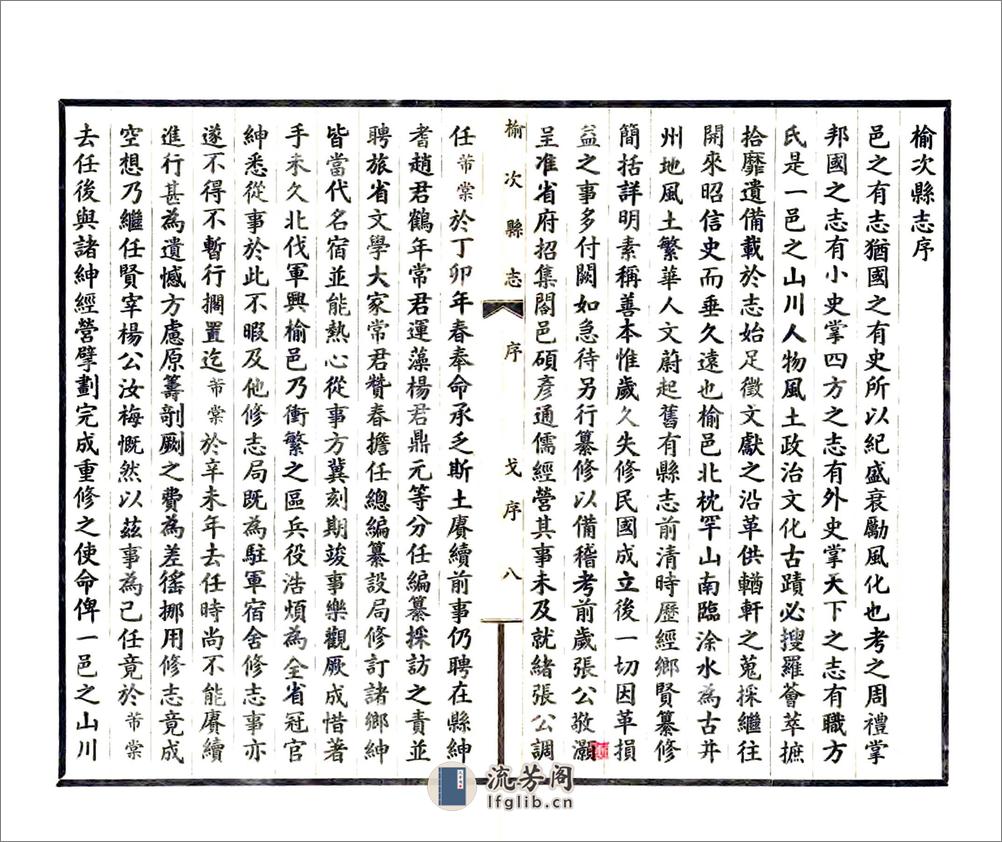 榆次縣志序
邑之有志猶國之有史所以紀盛衰勵風化也考之周禮掌
邦國之志有小史掌四方之志有外史掌天下之志有職方
氏是一邑之山川人物風土政治文化古蹟必搜羅薈萃摭
拾靡遺備載於志始足徵文獻之沿革供輶軒之蒐採繼往
開來昭信史而垂久遠也榆邑北枕罕山南臨涂水為古并
州地風土繁華人文蔚起舊有縣志前清時歷經鄉賢纂修
簡括詳明素稱善本惟歲久失修民國成立後一切因革損
益之事多付闕如急待另行纂修以備稽考前歲張公敬灝
呈准省府招集閤邑碩彥通儒經營其事未及就緒張公調
榆次縣志 序 戈序 八
任芾棠於丁卯年春奉命承乏斯土賡續前事仍聘在縣紳
耆趙君鶴年常君運藻楊君鼎元等分任編纂採訪之責並
聘旅省文學大家常君贊春擔任總編纂設局修訂諸鄉紳
皆當代名宿並能熱心從事方冀刻期竣事樂觀厥成惜著
手未久北伐軍興榆邑乃衝繁之區兵役浩煩為全省冠官
紳悉從事於此不暇及他修志局既為駐軍宿舍修志事亦
遂不得不暫行擱置迄芾棠於辛未年去任時尚不能賡續
進行甚為遺憾方慮原籌剞劂之費為差徭挪用修志竟成
空想乃繼任賢宰楊公汝梅慨然以茲事為己任竟於芾棠
去任後與諸紳經營擘劃完成重修之使命俾一邑之山川
流芳阁
lfglib.cn